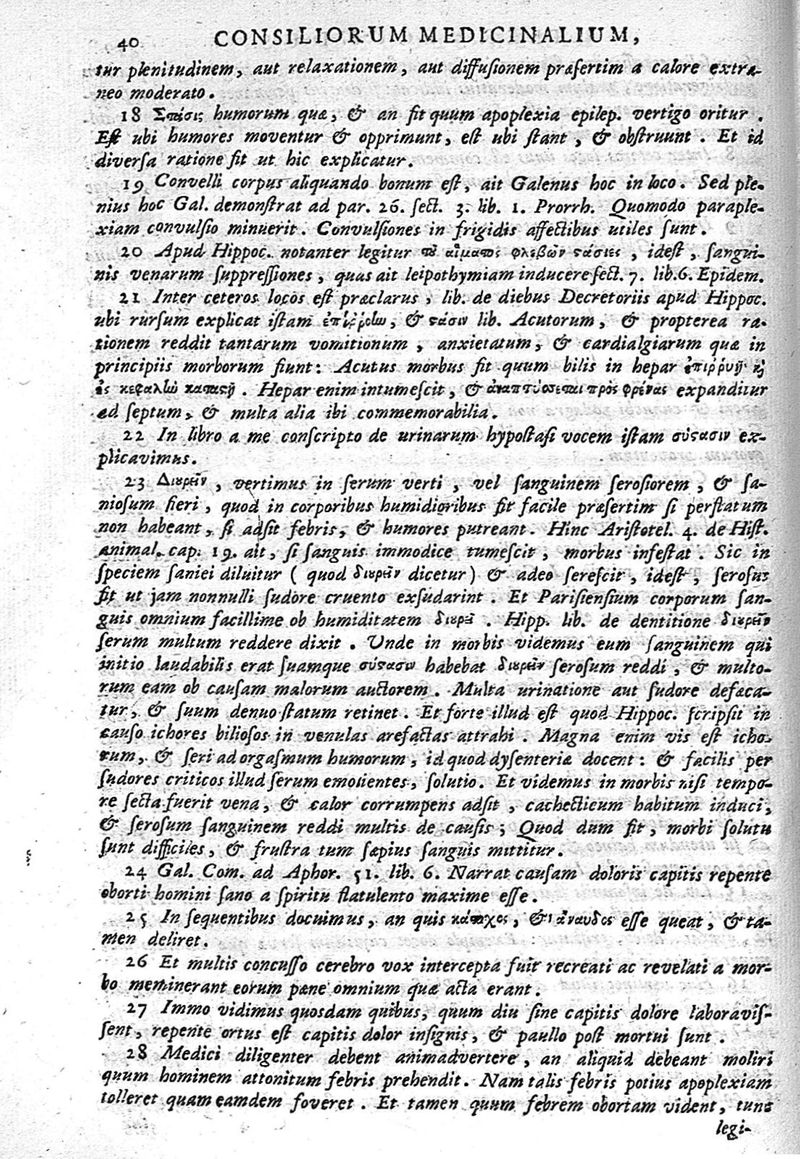 40 CONSILIORUM MEDICINALIUM,
tur plenitudinem, aut relaxationem, aut diffusionem præsertim a calore extra-
neo moderato.
18 Στάσις humorum quæ, & an fit quum apoplexia epilep. vertigo oritur.
Est ubi humores moventur & opprimunt, est ubi stant, & obstruunt. Et id
diversa ratione fit ut hic explicatur.
19 Convelli corpus aliquando bonum est, ait Galenus hoc in loco. Sed ple-
nius hoc Gal. demonstrat ad par. 26. sect. 3. lib. 1. Prorrh. Quomodo paraple-
xiam convulsio minuerit. Convulsiones in frigidis affectibus utiles sunt.
20 Apud Hippoc. notanter legitur αἵματος φλεβῶν στάσιες, idest, sangui-
nis venarum suppressiones, quas ait leipothymiam inducere sect. 7. lib. 6. Epidem.
21 Inter ceteros locos est præclarus, lib. de diebus Decretoriis apud Hippoc.
ubi rursum explicat istam & στάσιν lib. Acutorum, & propterea ra-
tionem reddit tantarum vomitionum, anxietatum, & cardialgiarum quæ in
principiis morborum fiunt: Acutus morbus fit quum bilis in hepar ἐπιῤῥυῇ
κεφαλὴν . Hepar enim intumescit, & ἀναπτύσσεται πρὸς φρένας expanditur
ad septum, & multa alia ibi commemorabilia.
22 In libro a me conscripto de urinarum hypostasi vocem istam σύστασιν ex-
plicavimus.
23 , vertimus in serum verti, vel sanguinem serosiorem, & sa-
niosum fieri, quod in corporibus humidioribus fit facile præsertim si perflatum
non habeant, si adsit febris, & humores putreant. Hinc Aristotel. 4. de Hist.
animal. cap. 19. ait, si sanguis immodice tumescit, morbus infestat. Sic in
speciem saniei diluitur (quod dicetur) & adeo serescit, idest, serosus
fit ut jam nonnulli sudore cruento exsudarint. Et Parisiensium corporum san-
guis omnium facillime ob humiditatem . Hipp. lib. de dentitione
serum multum reddere dixit. Unde in morbis videmus eum sanguinem qui
initio laudabilis erat suamque σύστασιν habebat serosum reddi, & multo-
rum eam ob causam malorum auctorem. Multa urinatione aut sudore defæca-
tur, & suum denuo statum retinet. Et forte illud est quod Hippoc. scripsit in
causo ichores biliosos in venulas arefactas attrahi. Magna enim vis est icho-
rum, & seri ad orgasmum humorum, id quod dysenteriæ docent: & facilis per
sudores criticos illud serum emolientes, solutio. Et videmus in morbis nisi tempo-
re secta fuerit vena, & calor corrumpens adsit, cachecticum habitum induci,
& serosum sanguinem reddi multis de causis; Quod dum fit, morbi solutu
sunt difficiles, & frustra tum sæpius sanguis mittitur.
24 Gal. Com. ad Aphor. 51. lib. 6. Narrat causam doloris capitis repente
oborti homini sano a spiritu flatulento maxime esse.
25 In sequentibus docuimus, an quis κάτοχος, & ἄναυδος esse queat, & ta-
men deliret.
26 Et multis concusso cerebro vox intercepta fuit recreati ac revelati a mor-
bo meminerant eorum pæne omnium quæ acta erant.
27 Immo vidimus quosdam quibus, quum diu sine capitis dolore laboravis-
sent, repente ortus est capitis dolor insignis, & paullo post mortui sunt.
28 Medici diligenter debent animadvertere, an aliquid debeant moliri
quum hominem attonitum febris prehendit. Nam talis febris potius apoplexiam
tolleret quam eamdem foveret. Et tamen quum febrem obortam vident, tunc
legi-